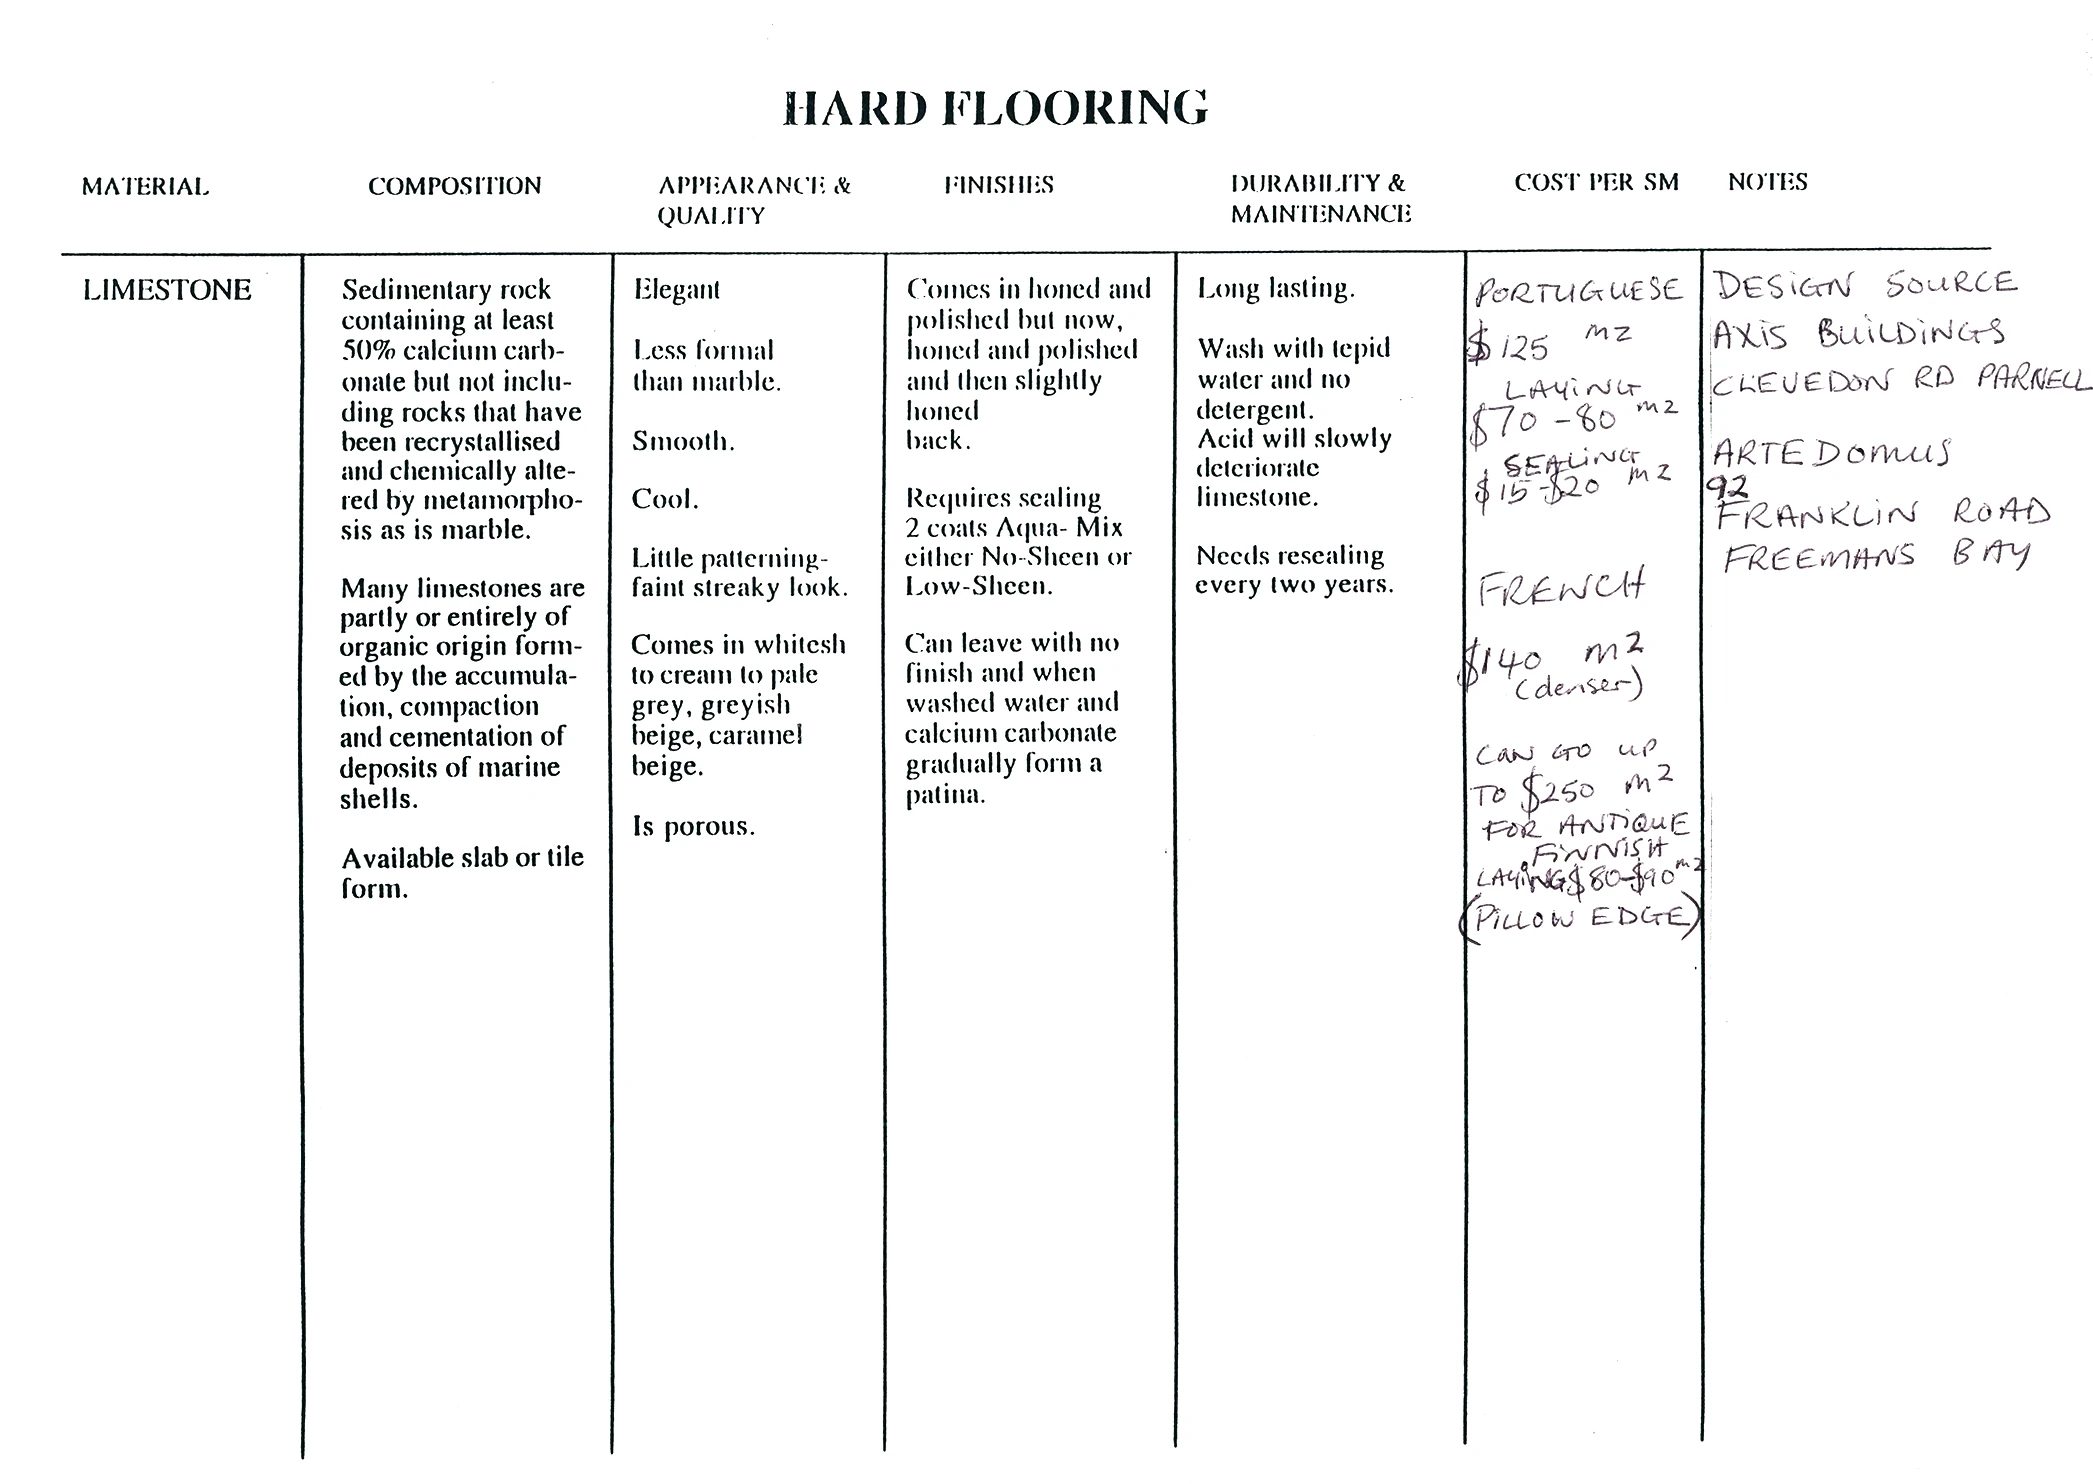 HARD FLOORING
MATERIAL
COMPOSITION
APPEARANCE &
QUALITY
FINISHES
DURABILITY &
MAINTENANCE
COST PER SM
NOTES
LIMESTONE
Sedimentary rock
containing at least
50% calcium carb-
onate but not inclu-
ding rocks that have
been recrystallised
and chemically alte-
red by metamorpho-
sis as is marble.
Many limestones are
partly or entirely of
organic origin form-
ed by the accumula-
tion, compaction
and cementation of
deposits of marine
shells.
Available slab or tile
form.
Elegant
Less formal
than marble.
Smooth.
Cool.
Little patterning-
faint streaky look.
Comes in whitesh
to cream to pale
grey, greyish
beige, caramel
beige.
Is porous.
Comes in honed and
polished but now,
honed and polished
and then slightly
honed
back.
Requires sealing
2 coats Aqua- Mix
either No-Sheen or
Low-Sheen.
Can leave with no
finish and when
washed water and
calcium carbonate
gradually form a
patina.
Long lasting.
Wash with tepid
water and no
detergent.
Acid will slowly
deteriorate
limestone.
Needs resealing
every two years.
PORTUGUESE
$125 m2
LAYING
$70 - 80 m2
SEALING
$15-$20 m2
FRENCH
$140 m2
(denser)
CAN GO UP
TO $250 m2
FOR ANTIQUE
FINNISH
LAYING $80-$90 m2
(PILLOW EDGE)
DESIGN SOURCE
AXIS BUILDINGS
CLEVEDON RD PARNELL
ARTEDOMUS
92
FRANKLIN ROAD
FREEMANS BAY